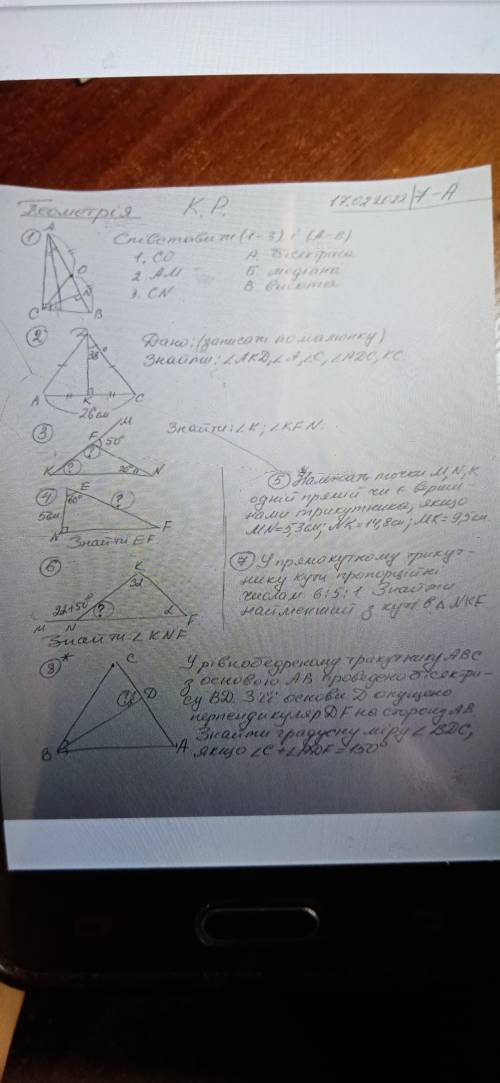 Геометрія К.Р. 17.02.2022 | 7-А
① Співставити (1-3) і (А-В)
1. CO А. бісектриса
2 AM Б медіана
3. CN В висота
A
O
N
C
B
② Дано: (записати по малюнку)
Знайти: ∠AKD, ∠A, ∠C, ∠ADC, KC.
38°
A K C
26 см
③ M
F 50°
?
K ? 20° N
Знайти: ∠K; ∠KFN
④ E
60° ?
5см
N F
Знайти EF
⑤ Належать точки M, N, K
одній прямій чи є верши-
нами трикутника, якщо
MN=5,3см; NK=14,8см; MK=9,5см
⑥ K
3α
2α+50° ? α
M N F
Знайти: ∠KNF
⑦ У прямокутному трикут-
нику кути пропорційні
числам 6:5:1 Знайти
найменший з кутів ΔNKF
⑧* У рівнобедреному трикутнику ABC
з основою AB проведено бісектри-
су BD. З її основи D опущено
перпендикуляр DF на сторону AB
Знайти градусну міру ∠BDC,
якщо ∠C+∠ADF=150°
C
D
B A